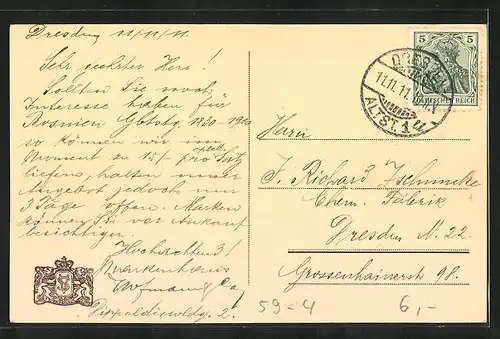 Dresden 11/11/11.
Sehr geehrter Herr!
Sollten Sie noch
Interesse haben für
Bosnien 1830-1910
so können wir im
Moment zu 15% pro Satz
liefern, halten unser
Angebot jedoch nur
3 Tage offen. Marken
können Sie vor Ankauf
besichtigen.
Hochachtend!
Markenhaus
Hofmann & Co/
Dippoldiswldg. 2.
5 5
DEUTSCHES REICH
DRESDEN
11.11.11.
ALTST. 1
Herrn
F. Richard Zschuncke
Chem. Fabrik
Dresden N. 22
Grossenhainerstr 98.
59-4
6,-